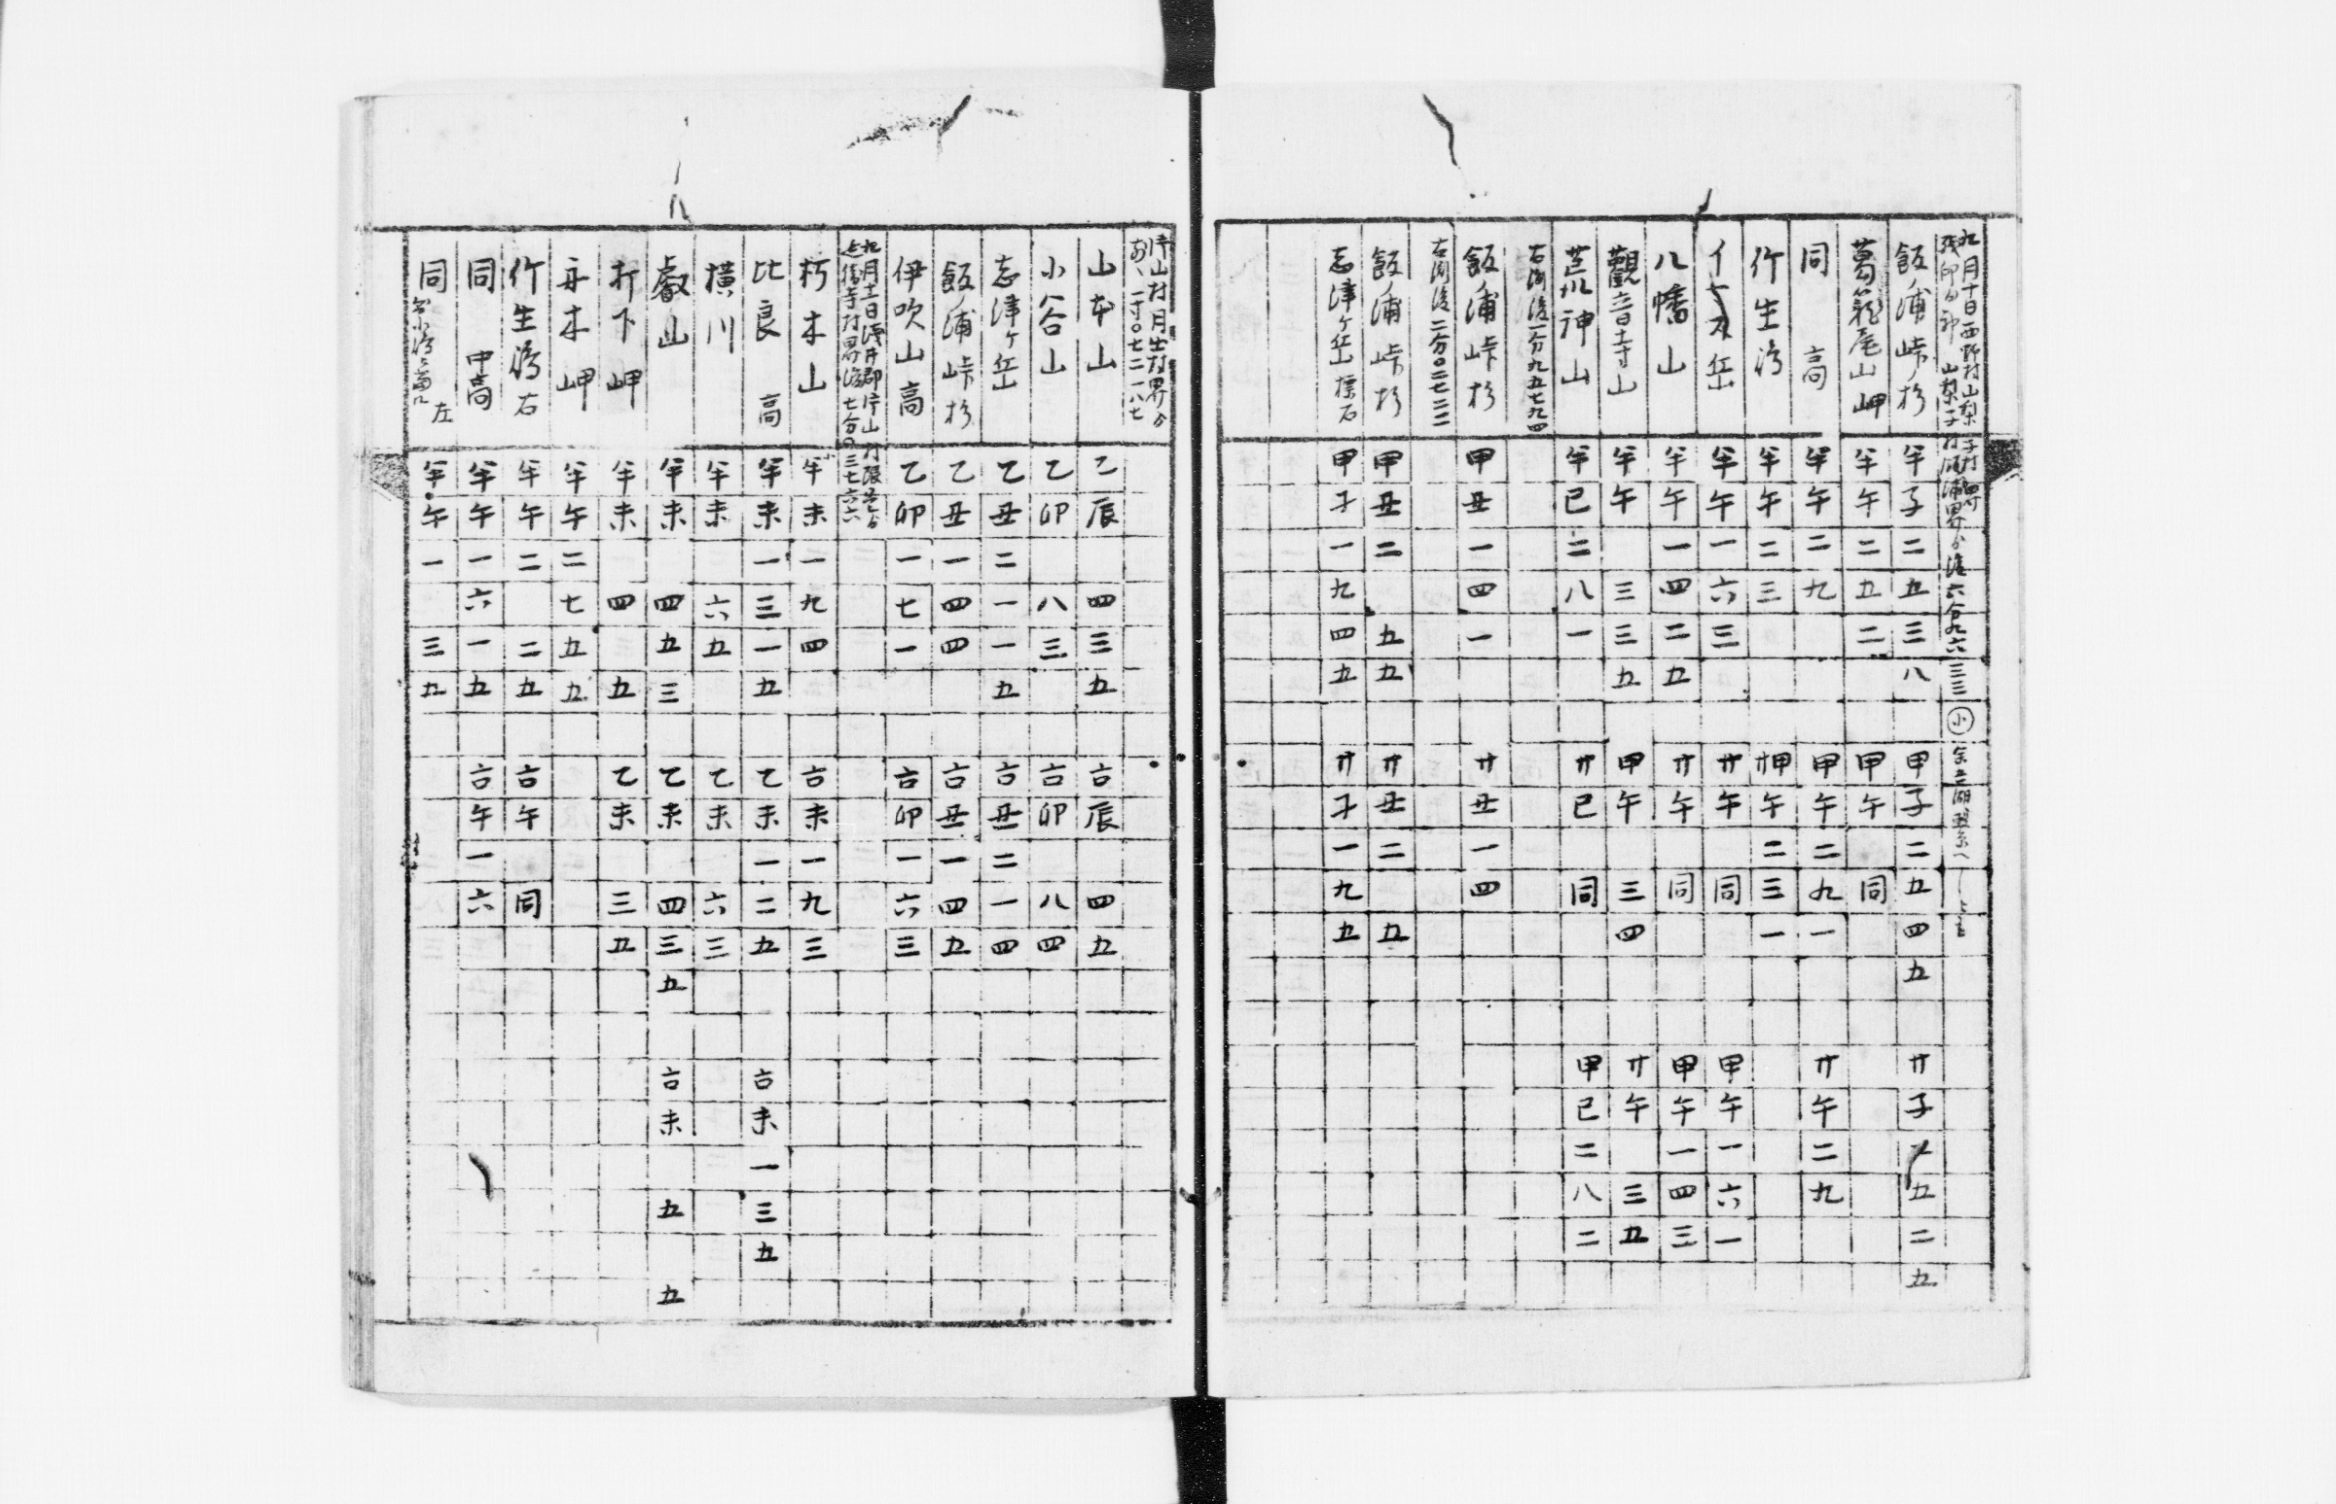 九月十日西野村山梨子村界
残印ゟ印 山梨子村飯浦界ゟ湾六分九六三三 小
飯ノ浦峠ノ杉 半子二五三八 甲子二五四五 廾子二五二五
葛籠尾山岬 半午二五二 甲午同
同 高 半午二九 甲午二九一 廾午二九
竹生濤 半午二三 甲午二三一
岳 半午一六三 廾午同 甲午一六一
八幡山 半午一四二五 廾午同 甲午一四三
觀音寺山 半午三三五 甲午三四 廾午三五
荒神山 半巳二八一 廾巳同 甲巳二八二
右測後一分九五七九四
飯ノ浦峠杉 甲丑一四一 廾丑一四
右測後二分〇二七二二
飯ノ浦峠杉 甲丑二五五 廾丑二五
志津ケ岳 標石 甲子一九四五 廾子一九五
片山村月出村界ゟ
一寸〇七二一八七
山本山 乙辰四三五 吉辰四五
小谷山 乙卯八三 吉卯八四
志津ケ岳 乙丑二一一五 吉丑二一四
飯ノ浦峠杉 乙丑一四四 吉丑一四五
伊吹山 高 乙卯一七一 吉卯一六三
九月十一日浅井郡片山村
寺村界湾七分〇三七六六
朽木山 半未一九四 吉未一九三
比良 高 半未一三一五 乙未一二五 吉未一三五
横川 半未六五 乙未六三
叡山 半未四五三 乙未四三五 吉未五五
打下岬 半未四三五 乙未三五
舟木岬 半午二七五五
竹生濤 右 半午二二五 吉午同
同 中高 半午一六一五 吉午一六
同 左 半午一三五